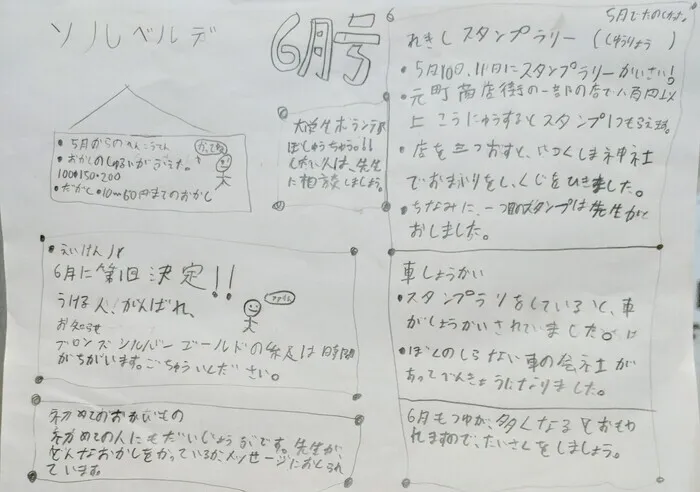 ソルベルデ
6月号
・5月からのへんこうてん
・おかしのしゅるいがふえた。
100・150・200
・だがし・10〜60円までのおかし
かってね
大学生ボランティア
ぼしゅうちゅう。
したい人は、先生
に相談しましょう。
・えいけん
6月に第1回決定!!
うける人!がんばれ、
お知らせ
ブロンズシルバーゴールドの糸足は時間
がちがいます。ごちゅういください。
初めてのおかいもの
初めての人にもだいじょうぶです。先生が、
どんなおかしをかっているか、メッセージにおくられ
ています。
5月でたのしかった。
れきしスタンプラリー(しゅうりょう)
・5月10日、11日にスタンプラリーがかいさい!
・元町商店街の一部の店で八百円以
上こうにゅうするとスタンプ1つもらえる。
・店を三つおすと、いつくしま神社
でおまいりをし、くじをひきました。
・ちなみに、一つ目のスタンプは先生が
おしました。
車しょうかい
・スタンプラリをしていると、車
がしょうかいされていました。
・ぼくのしらない車の会社が
あってべんきょうになりました。
6月もつゆが、多くなるとおもわ
れますので、たいさくをしましょう。